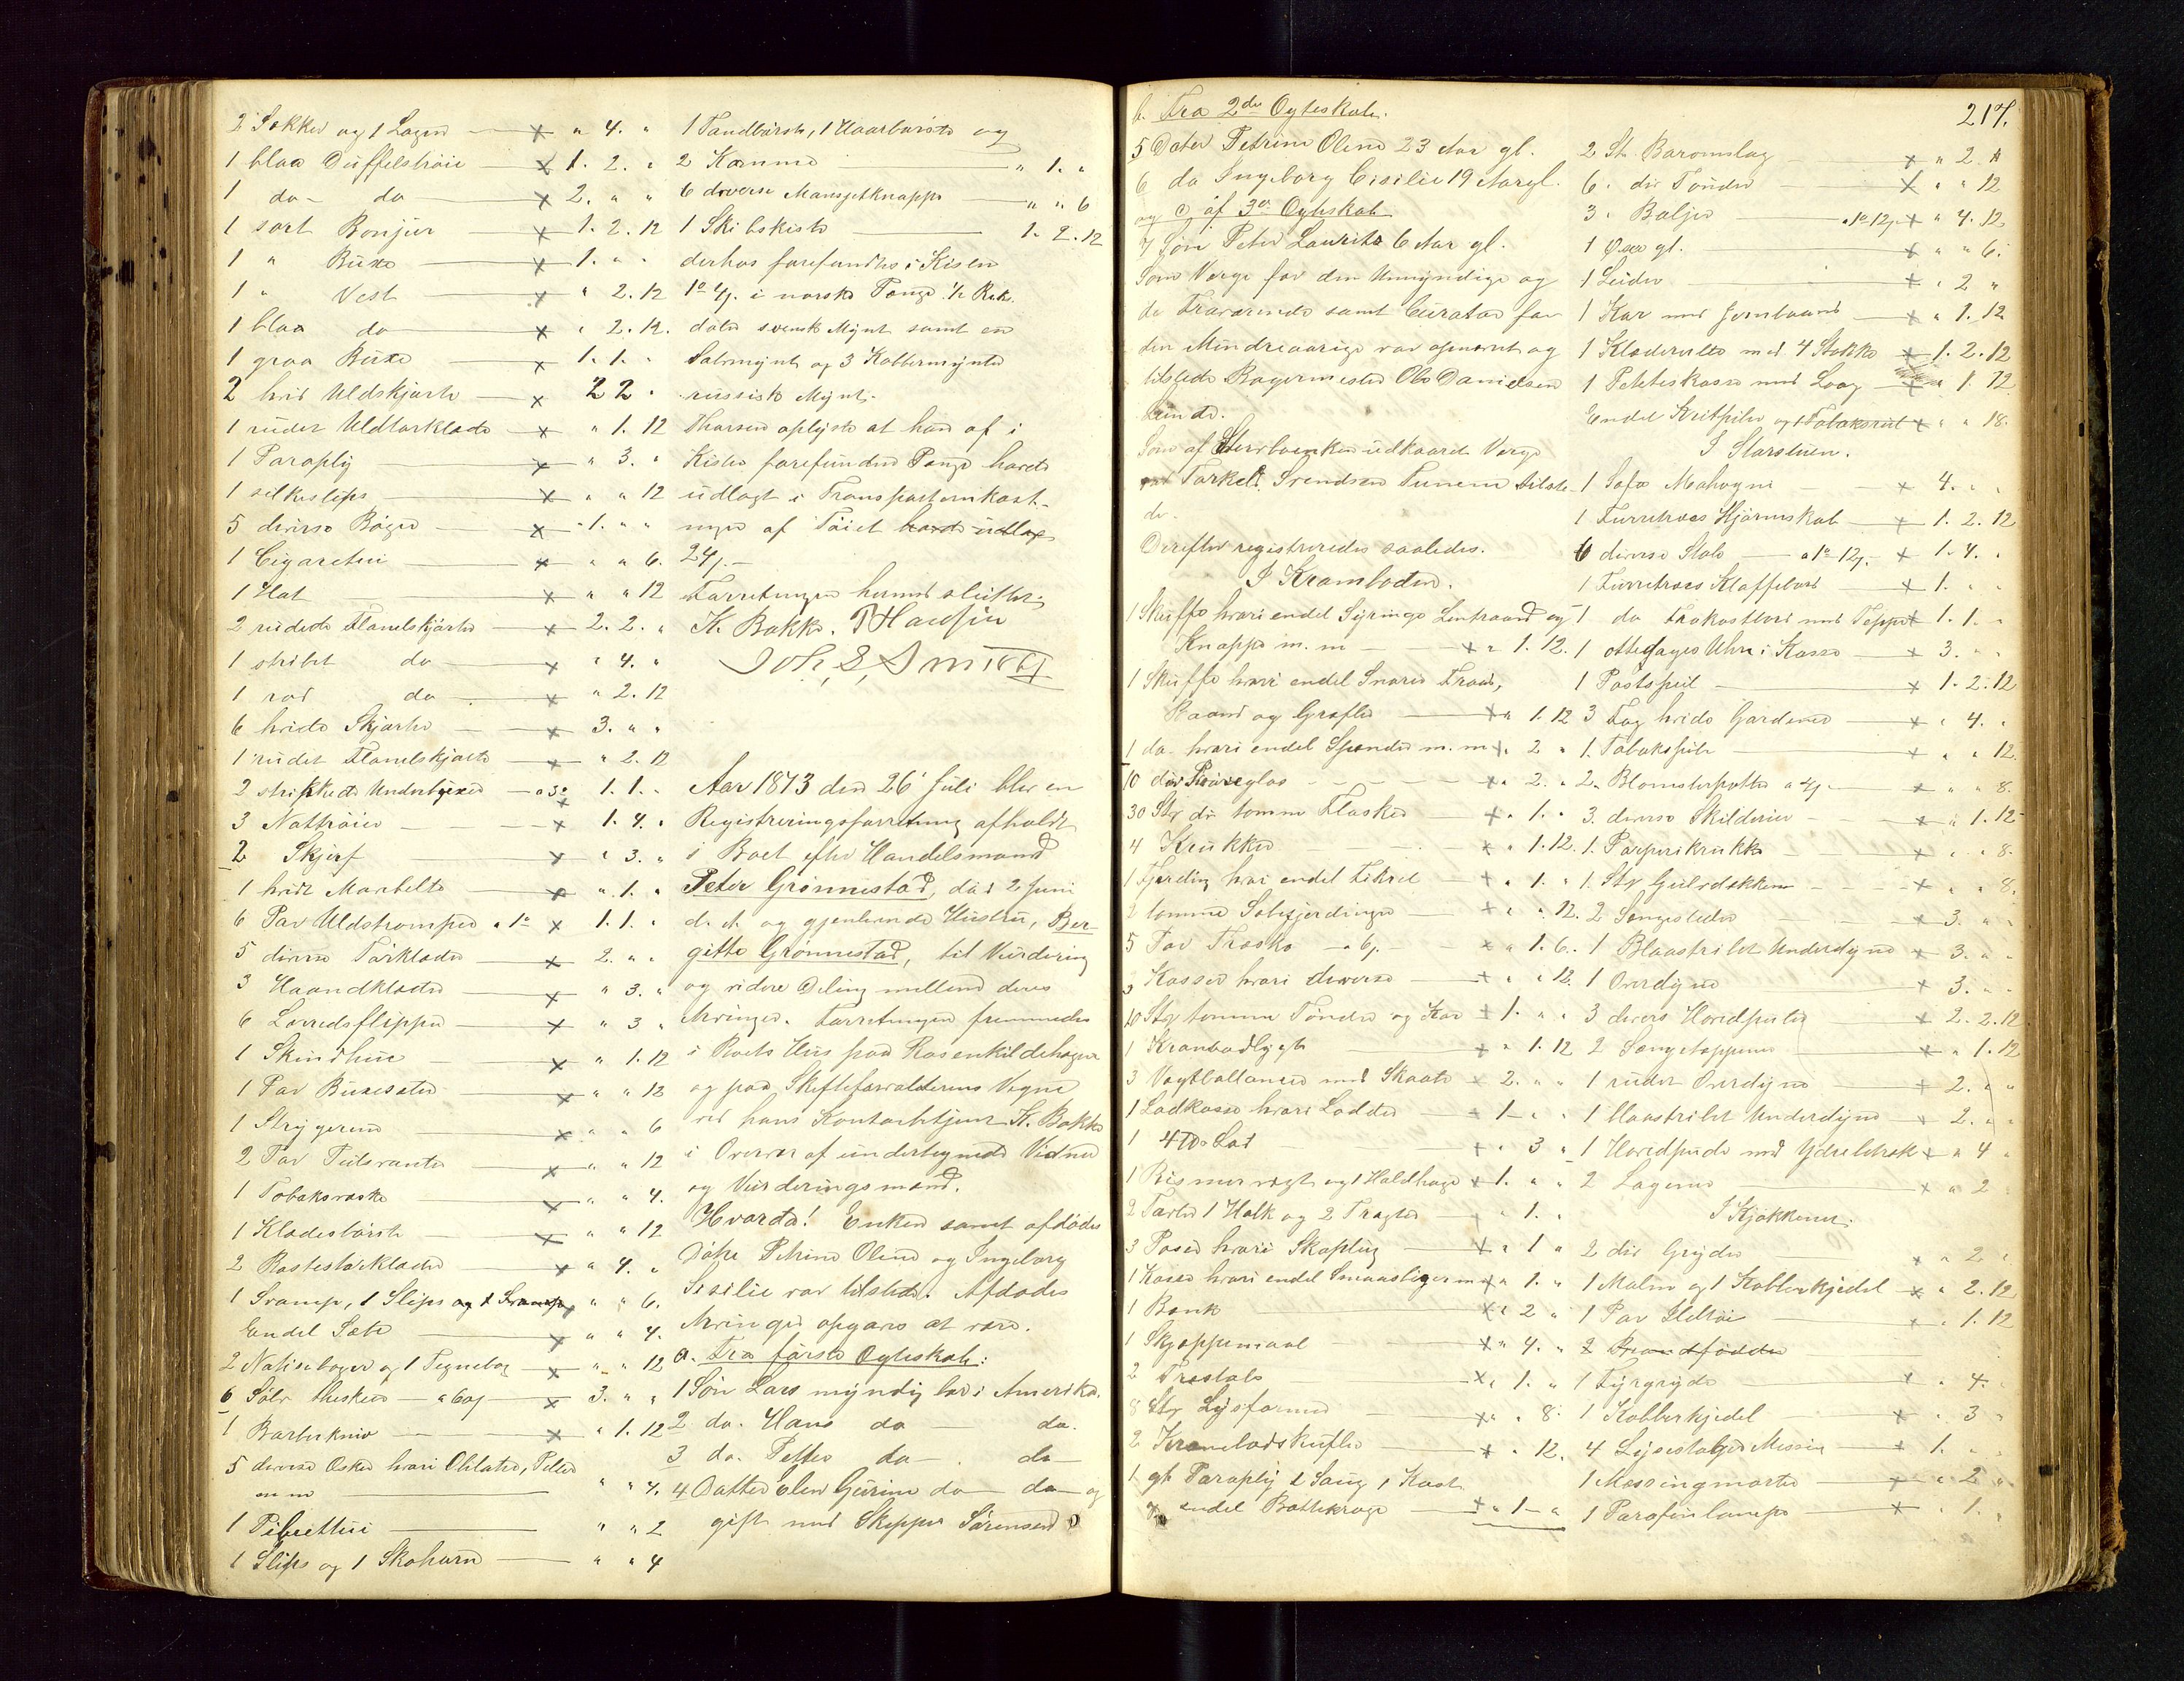 2 Sække og 1 Lagen × " 4. "
1 blaa Duffelstrøie × 1. 2. "
1 do - do × 2. " "
1 sort Bonjur × 1. 2. 12
1 " Buxe × 1. " "
1 " Vest × " 2. 12
1 blaa do × " 2. 12.
1 graa Buxe × 1. 1. "
2 hvid Uldskjorte × 2 2 "
1 rudet Uldtørklæde × " 1. 12
1 Paraply × " 3. "
1 silkeslips × " " 12
5 diverse Bøger × 1. " "
1 Cigaretui × " " 6.
1 Hat × " " 12
2 rudede Flanelskjorte × 2. 2. "
1 stribet do × " 4. "
1 rød do × " 2. 12
6 hvide Skjorte × 3. " "
1 rudet Flanelskjorte × " 2. 12
2 strikkede Underbuxer a 3o × 1. 1. "
3 Nattrøier × 1. 4. "
2 Skjerf × " 3. "
1 hvidt × " 1. "
6 Par Uldstrømper a 1o × 1. 1. "
5 diverse Tørklæder × 2. " "
3 Haandklæder × " 3. "
6 Lærredsflipper × " 3 "
1 Skindhue × " 1. 12
1 Par Buxeseler × " " 12
1 × " " 6
2 Par Pulsvanter × " " 12
1 Tobaksæske × " " 4.
1 Klædesbørste × " " 12
2 × " 4. "
1 Svamp, 1 Slips og 1 Svamp " " 6.
Endel Sæbe × " " 4.
2 Notisebøger og 1 Tegnebog × " " 12
6 Sølv Theskeer a 60/ × 3. " "
1 Barberkniv × " 1. 12
5 diverse Æsker hvori Oblater, Piller
m m " " 4.
1 Pibeettui " " 2
1 Slips og 1 Skohorn " " 4
1 Tandbørste, 1 Haarbørste og
2 Kamme " 1. "
6 diverse Mansjetknapper " " 6
1 Skibskiste 1. 2. 12
derhos forefandtes i Kisten
1o 4/. i norske Penge. 1/2 Rik.
daler svensk Mynt samt en
Sølvmynt og 3 Kobbermynter
russisk Mynt.
Thorsen oplyste at han af i
Kisten forefundne Penge havde
udlagt i Transportomkost-
ninger af Tøiet havde udlagt
24/.-
Forretningen hermed sluttet.
K. Bakke. T Hansen
Joh, S, Smith
Aar 1873 den 26' Juli blev en
Registreringsforretning afholdt
i Boet efter Handelsmand
Peter Grønnestad, død 2 Juni
d. A. og gjenlevende Hustru, Ber-
gitte Grønnestad, til Vurdering
og videre Deling mellem deres
Arvinger. Forretningen fremmedes
i Boets Hus paa Rosenkildehagen
og paa Skifteforvalterens Vegne
ved hans Kontorbetjent K. Bakke
i Overvær af undertegnede Vidner
og Vurderingsmænd.
Hvorda! Enken samt afdødes
Døtre Petrine Oline og Ingeborg
Sisilie var tilstede. Afdødes
Arvinger opgaves at være.
a. Fra første Ægteskab:
1 Søn Lars myndig bor i Amerika.
2 do. Hans do do.
3 do. Petter do - . do -
4 Datter Elen Gurine do - do - og
gift med Skipper Sørensen
217.
b. Fra 2det Ægteskab.
5 Dater Petrine Oline 23 Aar gl.
6 do Ingeborg Cisilie 19 Aar gl.
og c, af 3die Ægteskab
7 Søn Peter Lauritz 6 Aar gl.
Som Verge for den Umyndige og
de Fraværende samt Curator for
den Mindreaarige var opnævnt og
tilstede Bagermester Ole Danielsen
Lunde.
Som af udkaaret Verge
Torkel Svendsen Tunem tilste-
de.
Derefter registreredes saaledes.
I Kramboden.
1 Skuffe hvori endel Syringe Lentraad og
Knappe m. m × " 1. 12.
1 Skuffe hvori endel Snorer Traad,
Baand og Grafler × " 1. 12
1 do hvori endel Spænder m. m × " 2 "
10 div Prøveglas × " 2. "
30 Stk div tomme Flasker × " 1. "
4 Krukker × " 1. 12.
1 Fjerding hvori endel × " 1. "
2 tomme Sæbefjerdinger × " " 12.
5 Par Træsko a 6/. × " 1. 6.
3 Kasser hvori diverse × " " 12.
10 Stk tomme Tønder og Kar × 1. " "
1 Krambodlygte × " 1. 12
3 Vægtballancer med Skaale × 2. " "
1 Lodkasse hvori Lodder × 1 - " "
1 4 Lod × " 3 "
1 Bismervægt og 1 Holdhage × 1. " "
2 1 Holk og 2 Tragter × " 1. "
3 Poser hvori Skoplug × " 1 "
1 Kasse hvori endel m m × " 1. "
1 Bænk × " 2 "
1 Skjeppemaal × " 4. "
2 Træstole × " 1. "
8 Stk Lysformer × " " 8.
2 Krambodskuffer × " " 12.
1 gl. Paraply 1 Saug 1 Kost
og endel × " 1 - "
2 St. Baromslag × " 2. "
6. div Tønder × " " 12
3 " Baljer a 1o 12/. × " 4. 12
1 Øxe gl. × " " 6.
1 Leider × " 2 "
1 Kar med Jernbaand × " 1. 12
1 Klæderulle med 4 Stokke × 1. 2. 12
1 Poteteskasse med Laag × " 1. 12
Endel Kritpiber og 1 Tobaksrul × " " 18.
I Storstuen.
1 Sofa Mahogni × 4. " "
1 Furretræes Hjørneskab × 1. 2. 12
6 diverse Stole a 1o 12/. × 1. 4. "
1 Furretræes Klaffebord × 1. " "
1 do Frokostbord med Teppe × 1. 1. "
1 ottedages Uhr i Kasse × 3. " "
1 × 1. 2. 12
3 Fag hvide Gardiner × " 4. "
1. Tobakspibe × " " 12.
2. Blomsterpotter a 4/. × " " 8.
3. diverse Skilderier × " 1. 12
1. × " " 8.
1. Stk Gulvdækken × " " 8.
2 Sengesteder × 3. " "
1 Blaastribet Underdyne × 3. " "
1 Overdyne × 3. " "
3 divers Hovedputer × 2. 2. 12
2 Sengetæppener × " 1. 12
1 rudet Overdyne × 2. " "
1 blaastribet Underdyne × 2. " "
1 Hovedpude med Ydrebetræk × " 4 "
2 Lagener × " 2 "
I Kjøkkenet.
2 div Gryder × " 2 "
1 Malm og 1 Kobberkjedel × " 2. 12
1 Par Ildtøi × " 1. 12
2 Brandfødder
1 Fyrgryde × " 4. "
1 Kobberkjedel × " 3 "
4 Lysestager Messin × 1. " "
1 Messingmorter × " 2 "
1 Parafinlampe × " 1. "